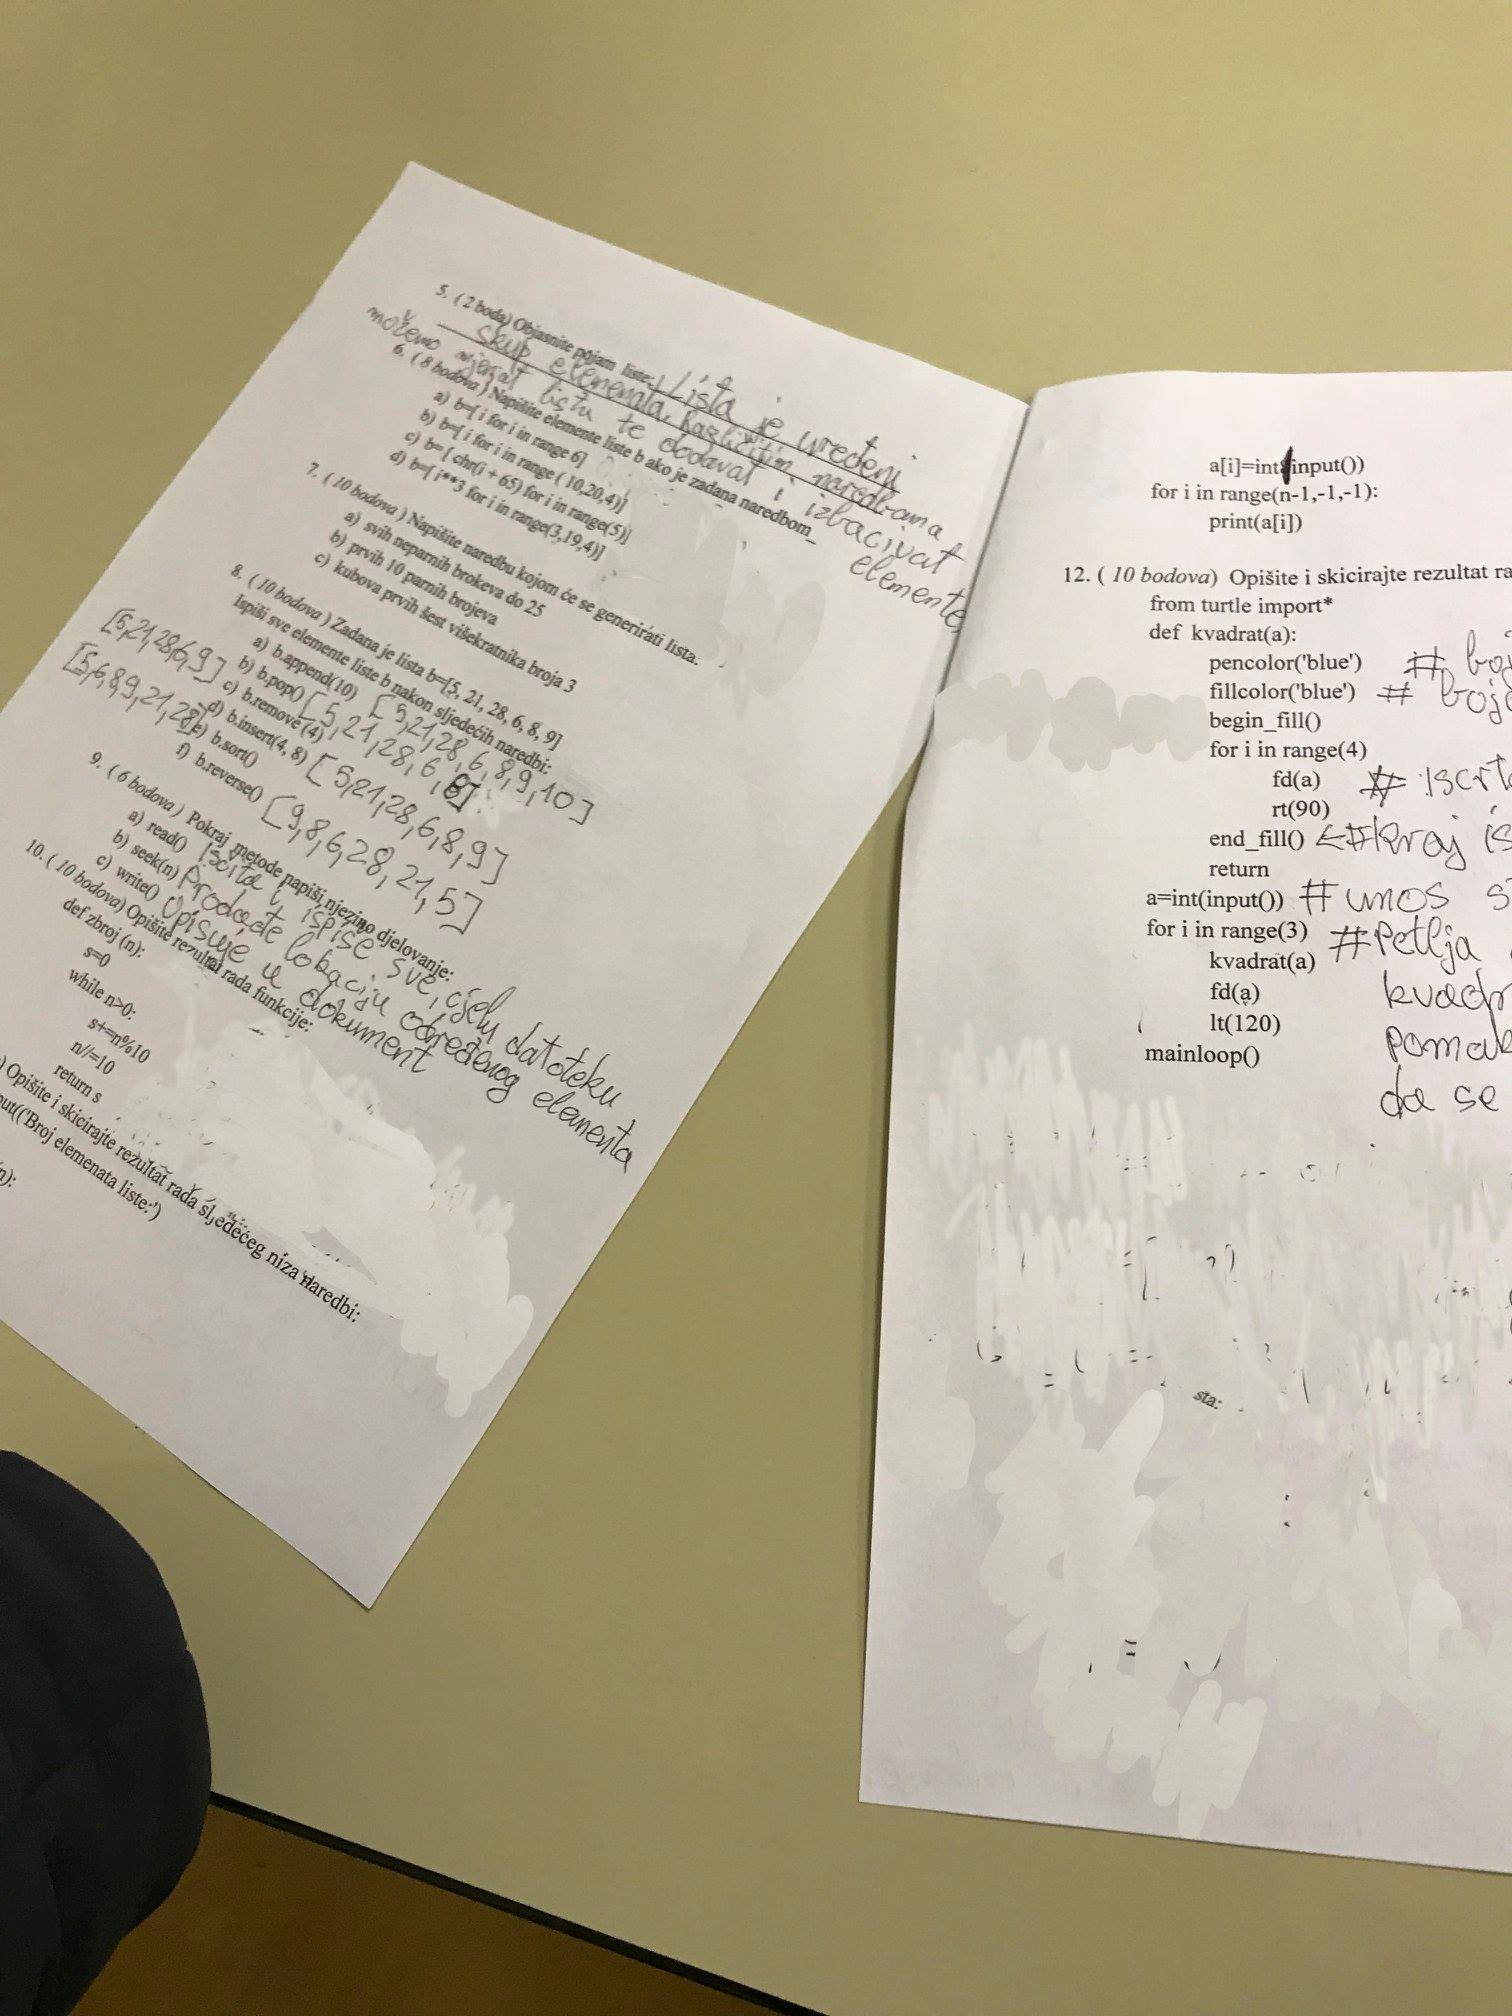 5. ( 2 boda) Objasnite pojam liste: Lista je uređeni
skup elemenata. Različitim naredbama
možemo mjenjat listu te dodavat i izbacivat
elemente.
6. ( 8 bodova ) Napišite elemente liste b ako je zadana naredbom_
a) b=[ i for i in range 6]
b) b=[ i for i in range ( 10,20,4)]
c) b= [ chr(i + 65) for i in range(5)]
d) b=[ i**3 for i in range(3,19,4)]
7. ( 10 bodova ) Napišite naredbu kojom će se generirati lista.
a) svih neparnih brokeva do 25
b) prvih 10 parnih brojeva
c) kubova prvih šest višekratnika broja 3
8. ( 10 bodova ) Zadana je lista b=[5, 21, 28, 6, 8, 9]
Ispiši sve elemente liste b nakon sljedećih naredbi:
a) b.append(10) [5,21,28,6,8,9,10]
b) b.pop() [5,21,28,6,8]
[5,21,28,6,9] c) b.remove (4)
d) b.insert(4, 8) [5,21,28,6,8,9]
[5,6,8,9,21,28] e) b.sort()
f) b.reverse() [9,8,6,28,21,5]
9. ( 6 bodova ) Pokraj metode napiši njezino djelovanje:
a) read() isčita i ispiše sve, cjelu datoteku
b) seek(n) Prođe lokaciju određenog elementa
c) write() Upisuje u dokument
10. ( 10 bodova) Opišite rezultat rada funkcije:
def zbroj (n):
s=0
while n>0:
s+=n%10
n//=10
return s
) Opišite i skicirajte rezultat rada sljedećeg niza naredbi:
put(('Broj elemenata liste:')
n):
a[i]=int(input())
for i in range(n-1,-1,-1):
print(a[i])
12. ( 10 bodova) Opišite i skicirajte rezultat ra
from turtle import*
def kvadrat(a):
pencolor('blue') # boj
fillcolor('blue') # boja
begin_fill()
for i in range(4)
fd(a) # iscrta
rt(90)
end_fill() ←#kraj is
return
a=int(input()) # unos s
for i in range(3) #Petlja
kvadrat(a) kvadr
fd(a)
lt(120) pomak
mainloop()
da se
sta: